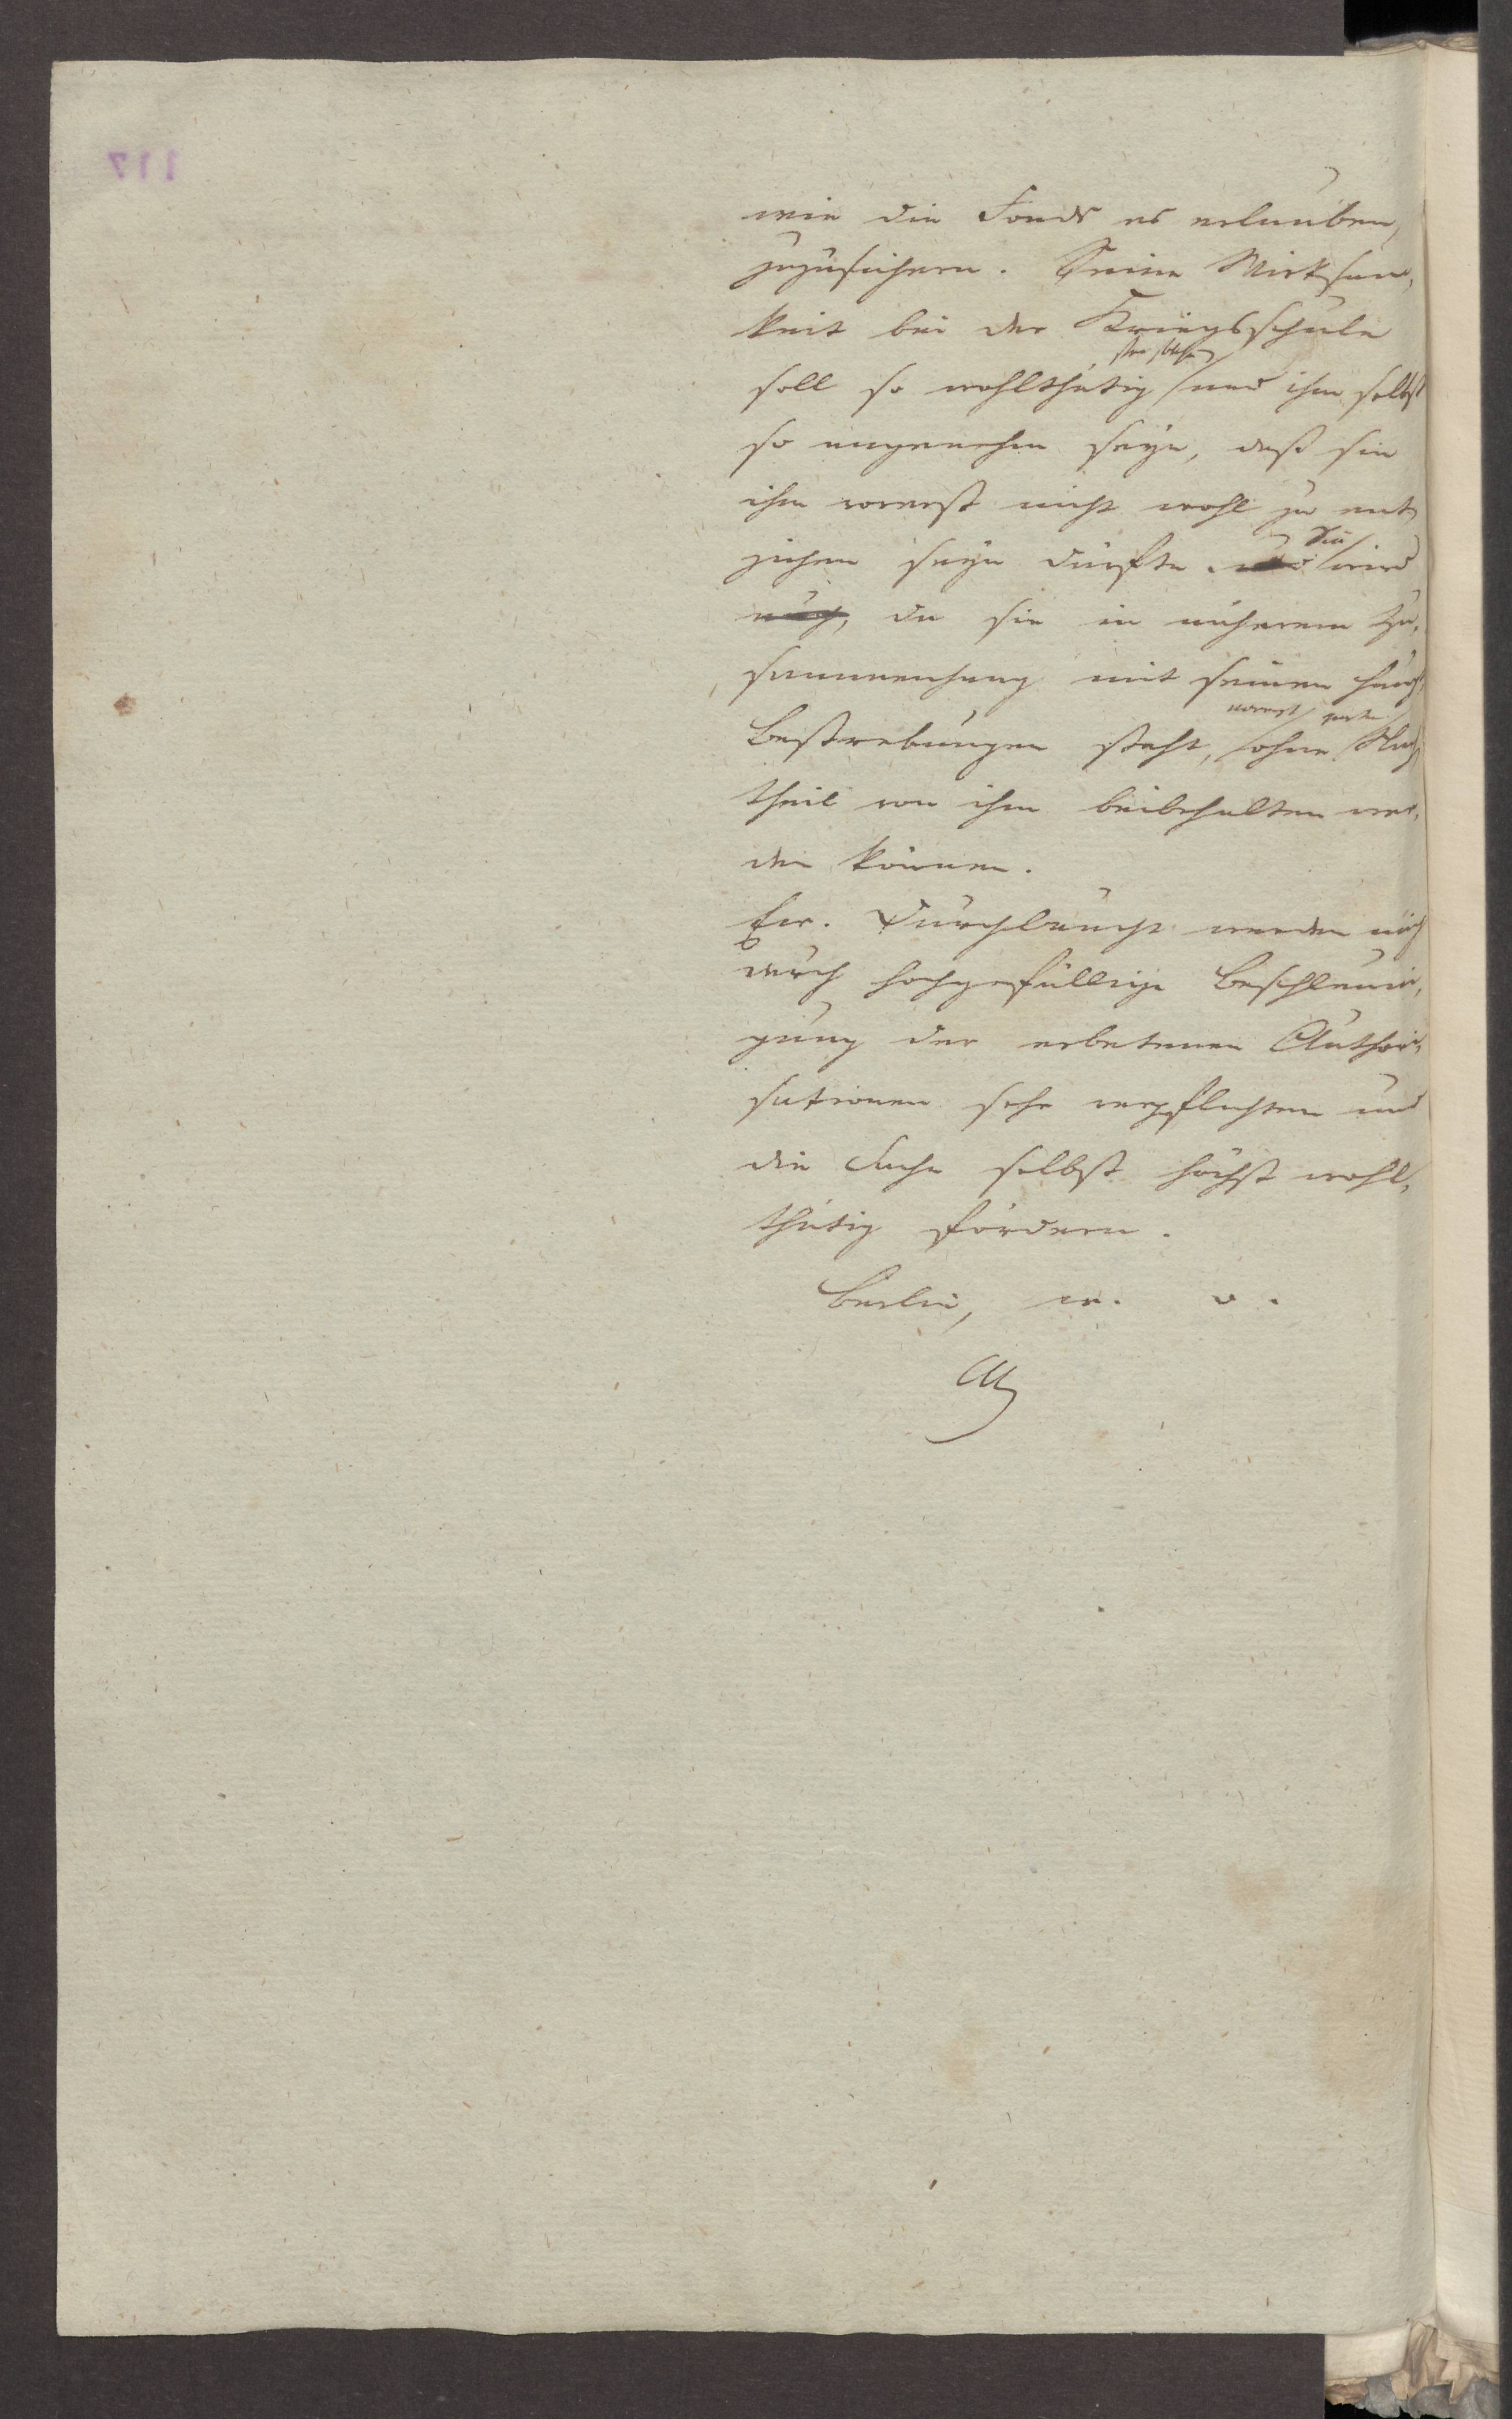 wie die Fonds es erlauben,
zuzusichern. Seine Wirksam,
keit bei der Kriegsschule
soll so wohlthätig und ihm selbst
so angenehm seyn, daß sie
ihm vorerst nicht wohl zu ent
ziehen seyn dürfte. und Sie wird
auch, da sie in näherem Zu,
sammenhang mit seinen Haupt
Bestrebungen steht, vorerst ohne Nach
theil von ihm beibehalten wer,
den können.
Ew. Durchlaucht werden mich
durch hochgefällige Beschleuni,
gung der erbetenen Authori,
sationen sehr verpflichten und
die Sache selbst höchst wohl,
thätig fördern.
Berlin,
117